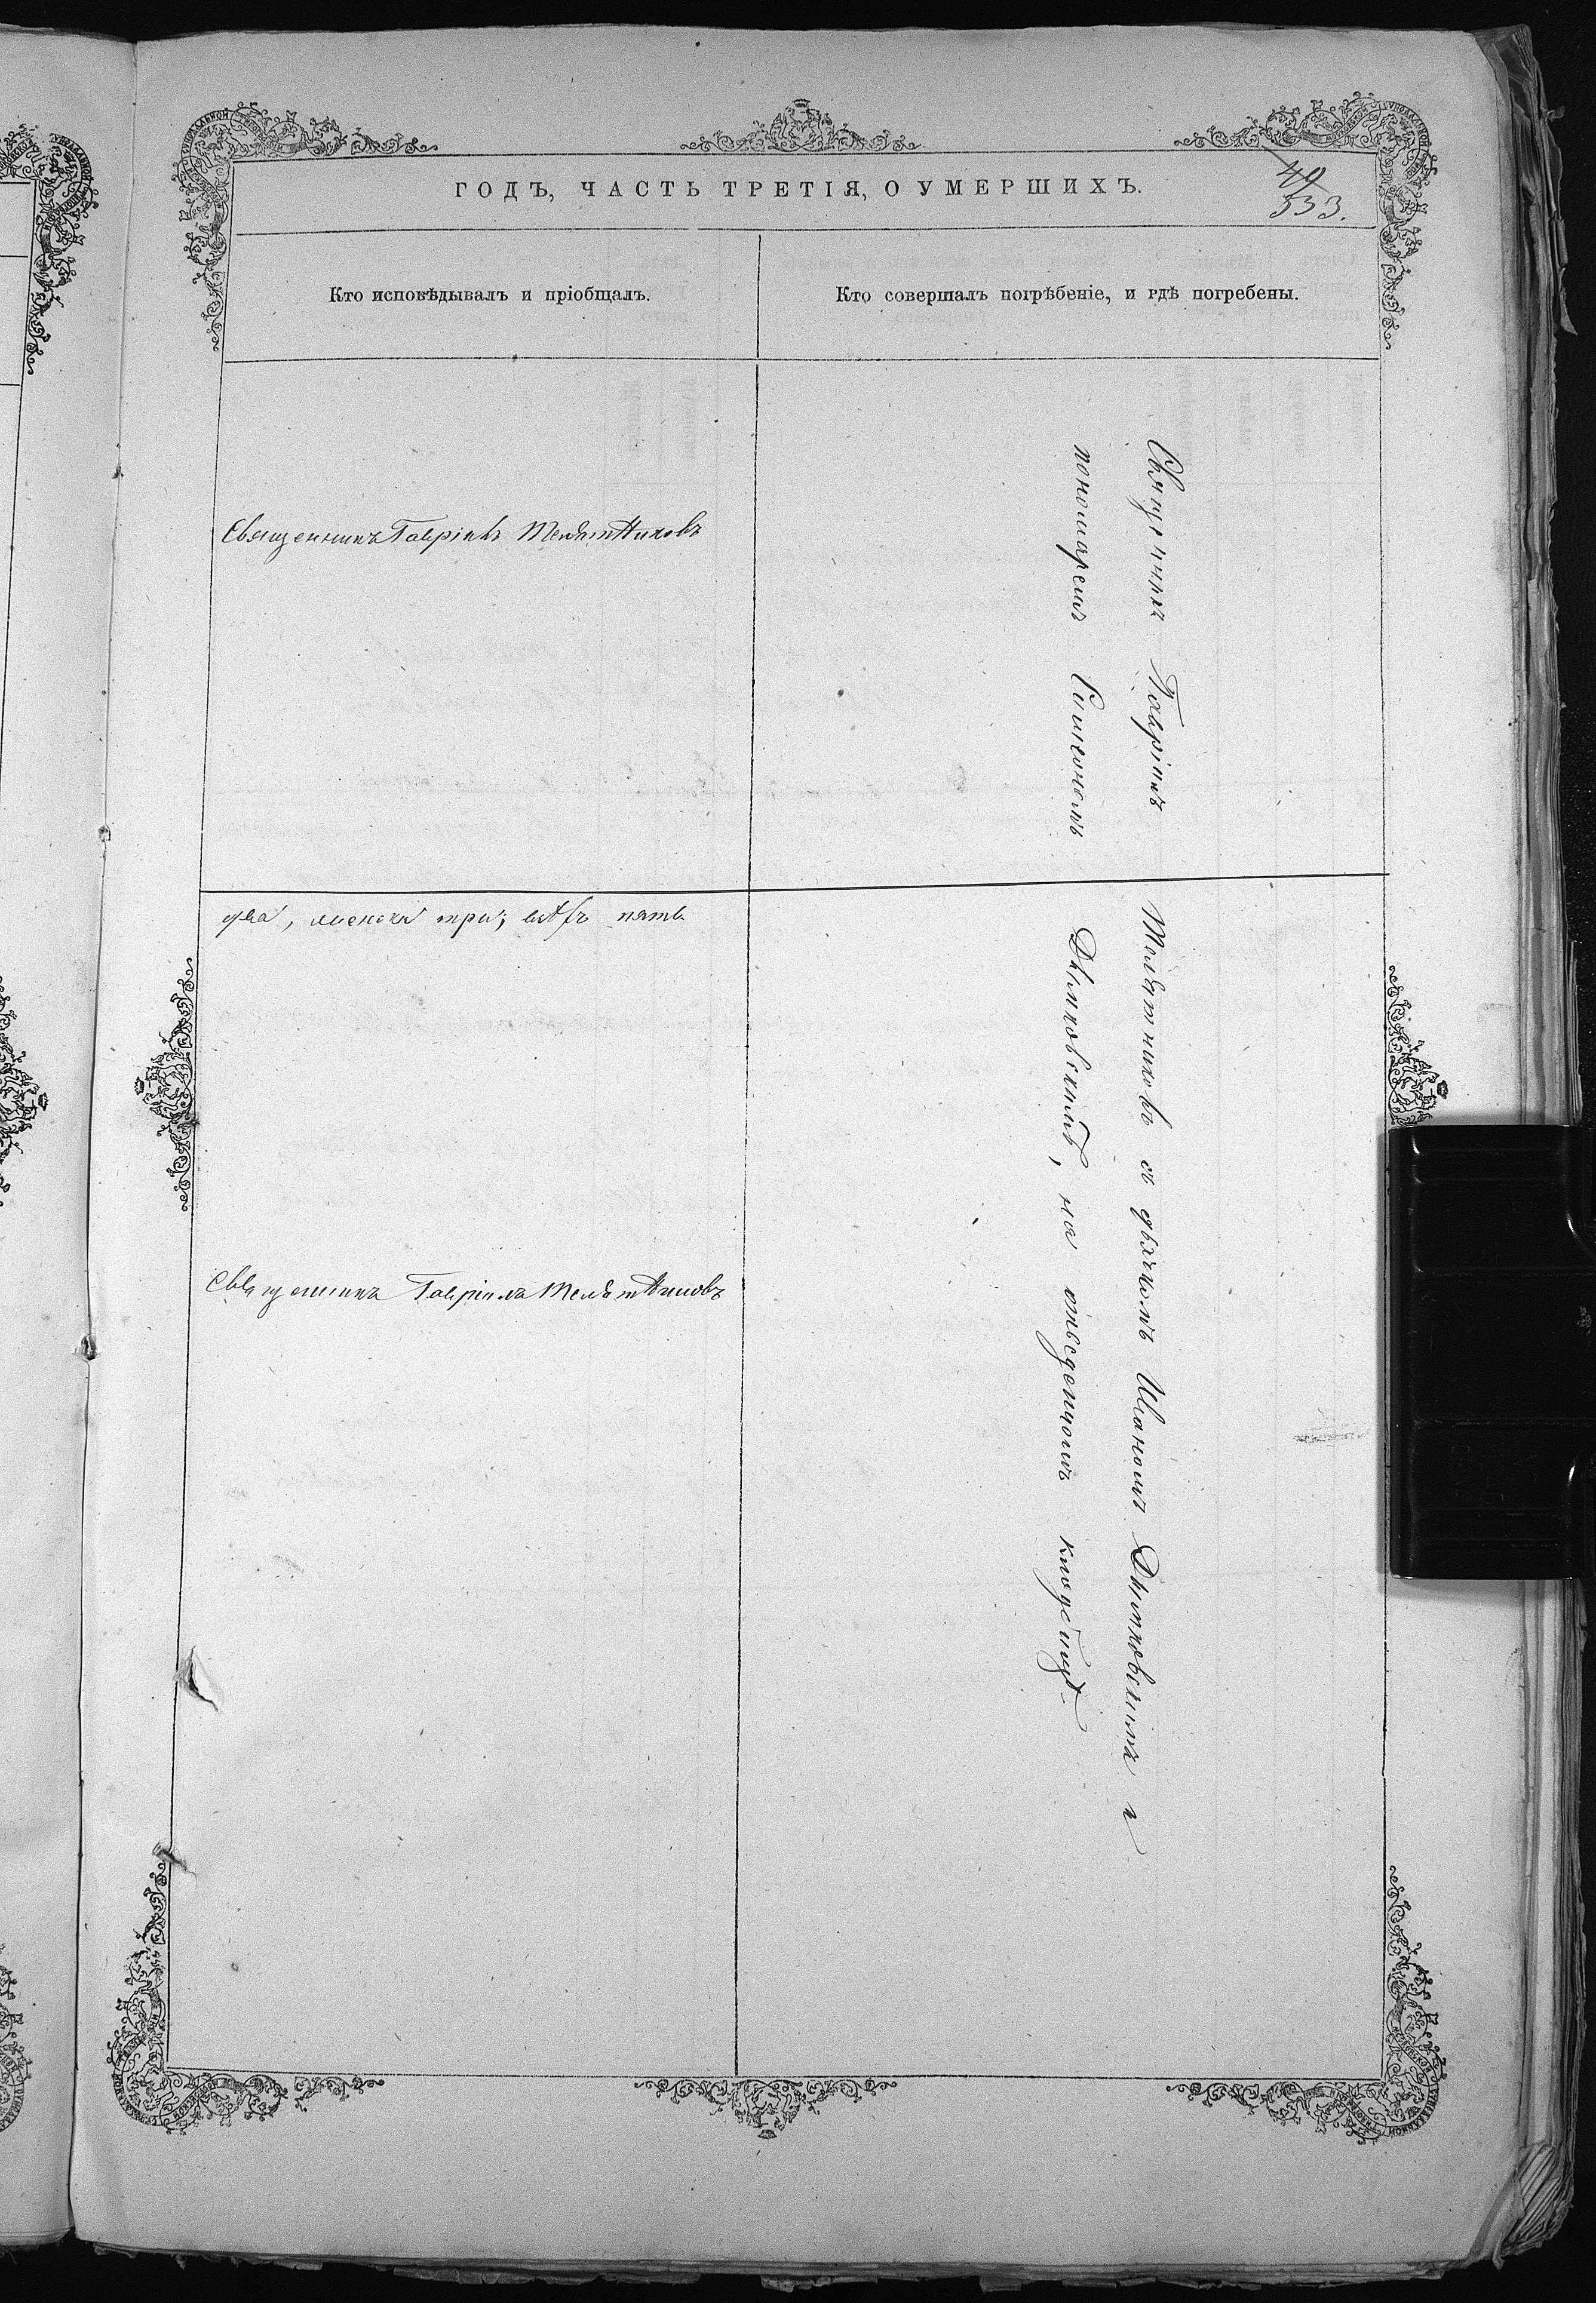 ГОДЪ, ЧАСТЬ ТРЕТІЯ, О УМЕРШИХЪ.
49
533.
Кто исповѣдывалъ и пріобщалъ.
Кто совершалъ погрѣбеніе, и гдѣ погребены.
Священникъ Гавріилъ Телятниковъ
два, женска три; всѣхъ пять
Священникъ Гавріилъ Телятниковъ
Священникъ Гавріилъ Телятниковъ съ дьячкомъ Иваномъ Дымковскимъ и
пономаремъ Симеономъ Дымковскимъ, на отведенномъ кладбищѣ